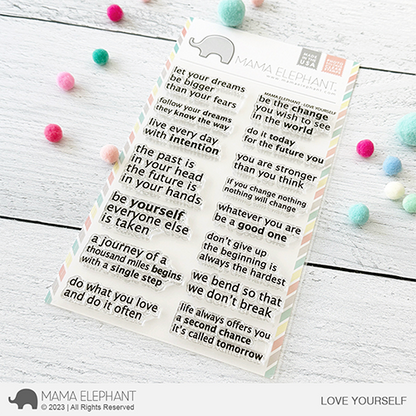 MAMA ELEPHANT
MADE IN USA
MAMA ELEPHANT . LOVE YOURSELF
let your dreams
be bigger
than your fears
follow your dreams
they know the way
live every day
with intention
the past is
in your head
the future is
in your hands
be yourself
everyone else
is taken
a journey of a
thousand miles begins
with a single step
do what you love
and do it often
be the change
you wish to see
in the world
do it today
for the future you
you are stronger
than you think
if you change nothing
nothing will change
whatever you are
be a good one
don't give up
the beginning is
always the hardest
we bend so that
we don't break
life always offers you
a second chance
it's called tomorrow
MAMA ELEPHANT
© 2023 | All Rights Reserved
LOVE YOURSELF